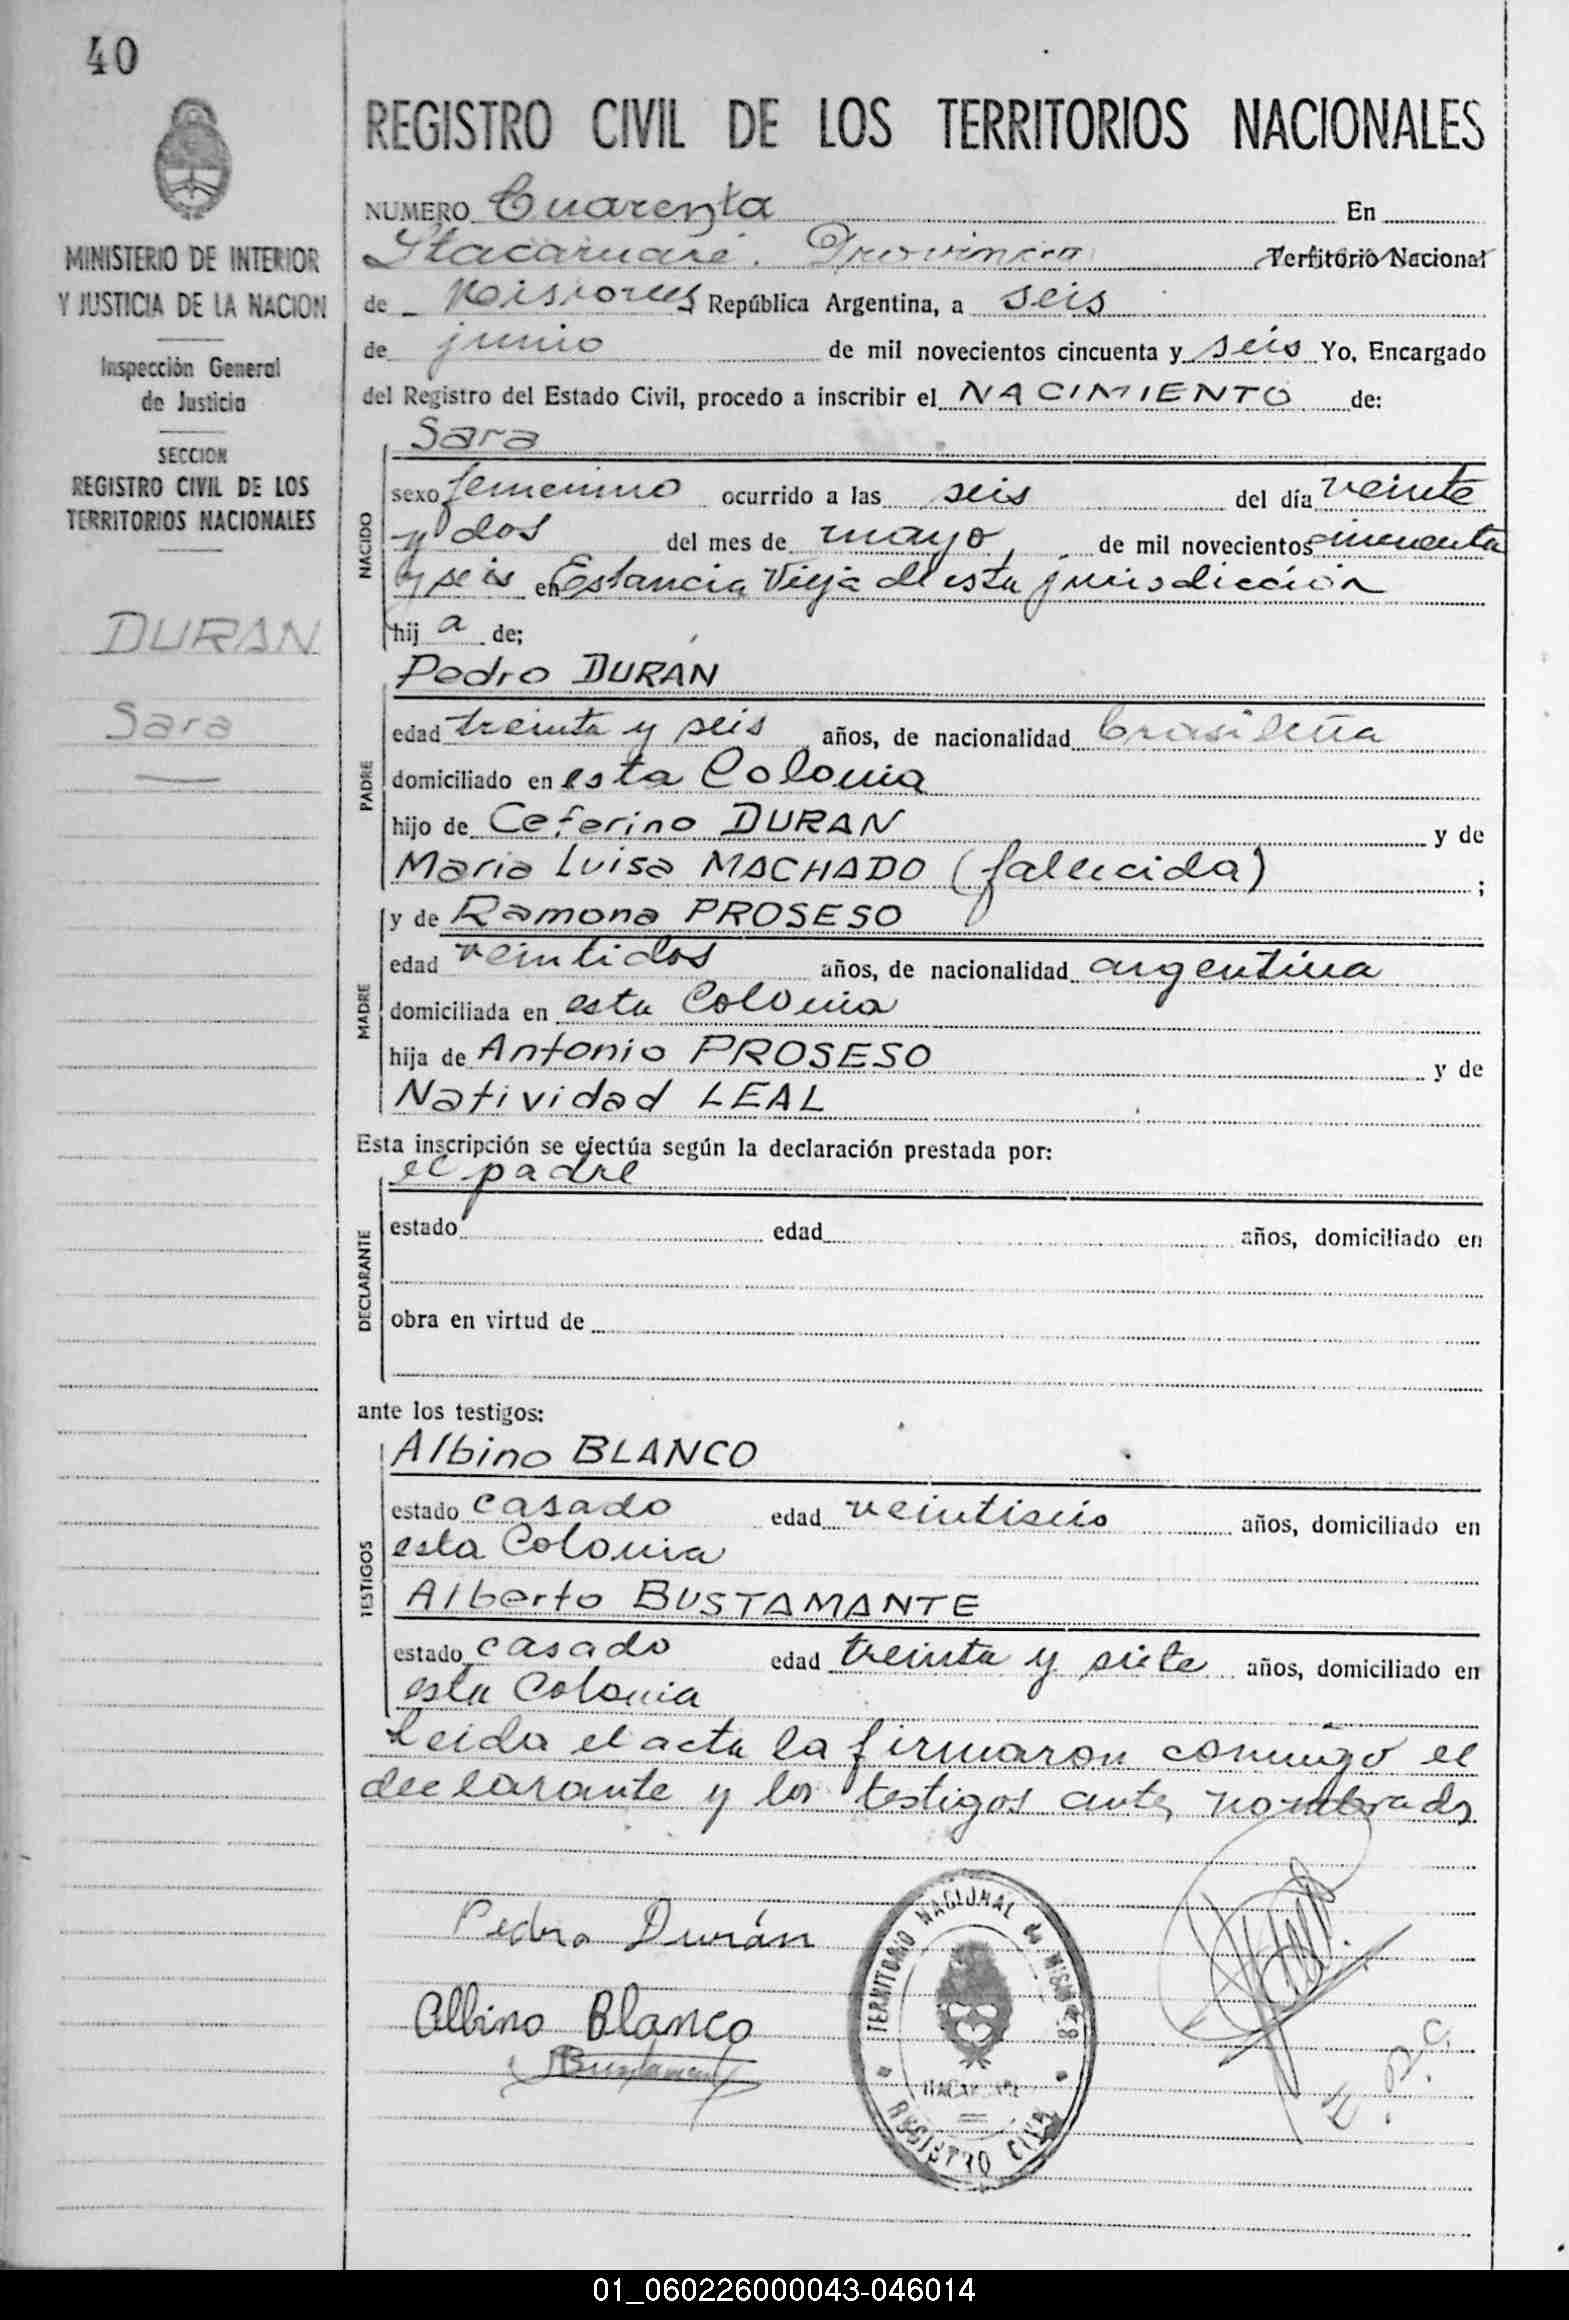 40
MINISTERIO DE INTERIOR
Y JUSTICIA DE LA NACION
Inspección General
de Justicia
SECCION
REGISTRO CIVIL DE LOS
TERRITORIOS NACIONALES
DURAN
Sara
REGISTRO CIVIL DE LOS TERRITORIOS NACIONALES
NUMERO Cuarenta En
Itacaruaré. Provincia Territorio Nacional
de Misiones República Argentina, a seis
de junio de mil novecientos cincuenta y seis Yo, Encargado
del Registro del Estado Civil, procedo a inscribir el NACIMIENTO de:
NACIDO
Sara
sexo femenino ocurrido a las seis del día veinte
y dos del mes de mayo, de mil novecientos cincuenta
y seis en Estancia Vieja de esta jurisdicción
hij a de;
PADRE
Pedro DURAN
edad treinta y seis años, de nacionalidad brasileña
domiciliado en esta Colonia
hijo de Ceferino DURAN y de
Maria Luisa MACHADO (fallecida) ;
MADRE
y de Ramona PROSESO
edad veintidos años, de nacionalidad argentina
domiciliada en esta Colonia
hija de Antonio PROSESO y de
Natividad LEAL
Esta inscripción se efectúa según la declaración prestada por:
DECLARANTE
el padre
estado edad años, domiciliado en
obra en virtud de
ante los testigos:
TESTIGOS
Albino BLANCO
estado casado edad veintiseis años, domiciliado en
esta Colonia
Alberto BUSTAMANTE
estado casado edad treinta y siete años, domiciliado en
esta Colonia
Leida el acta la firmaron conmigo el
declarante y los testigos antes nombrados
Pedro Durán
Albino Blanco
Bustamante
TERRITORIO NACIONAL de MISIONES
REGISTRO CIVIL
E.R.C.
01_060226000043-046014